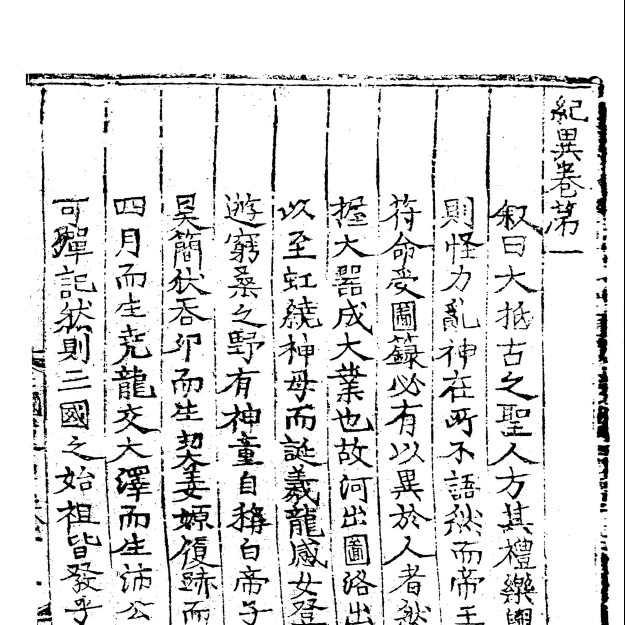 紀異卷第一
叙曰大抵古之聖人方其禮樂興
則怪力亂神在所不語然而帝王
符命受圖籙必有以異於人者然
握大器成大業也故河出圖洛出
以至虹繞神母而誕羲龍感女登
遊窮桑之野有神童自稱白帝子
昊簡狄吞卵而生契姜嫄履跡而
四月而生堯龍交大澤而生沛公
可殫記然則三國之始祖皆發乎